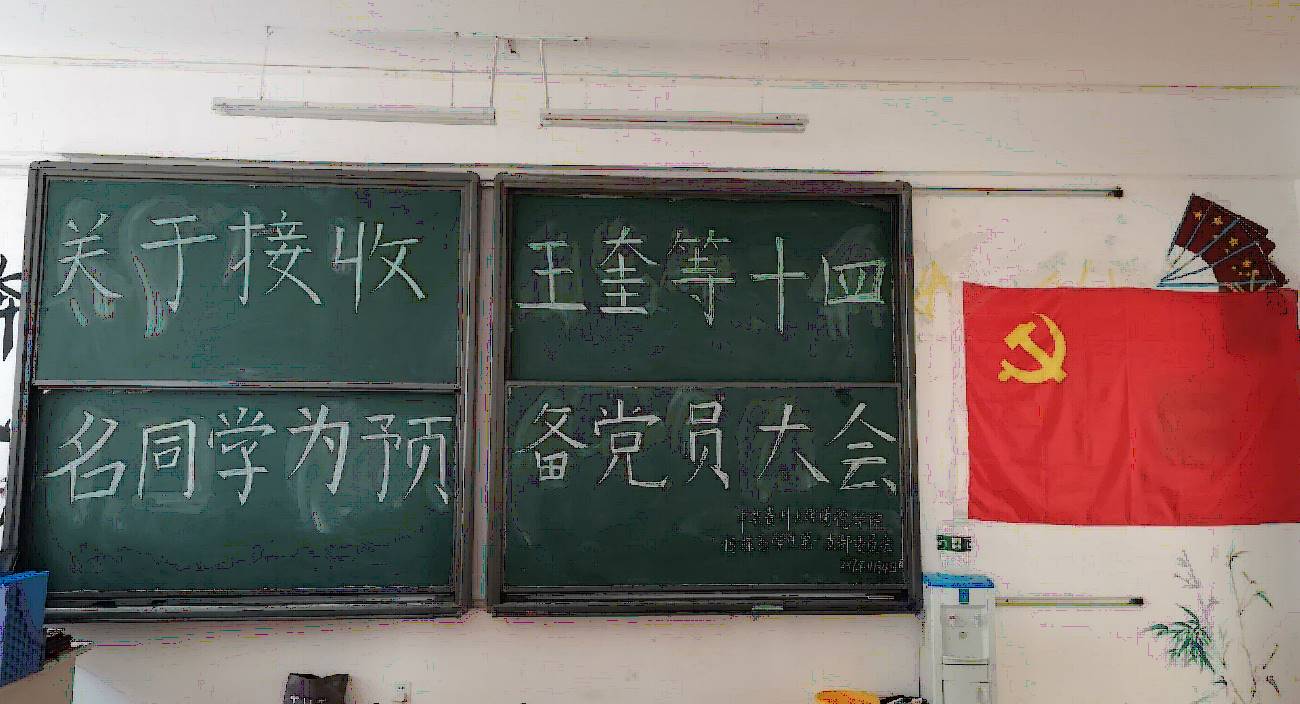 关于接收
王奎等十四
名同学为预
备党员大会